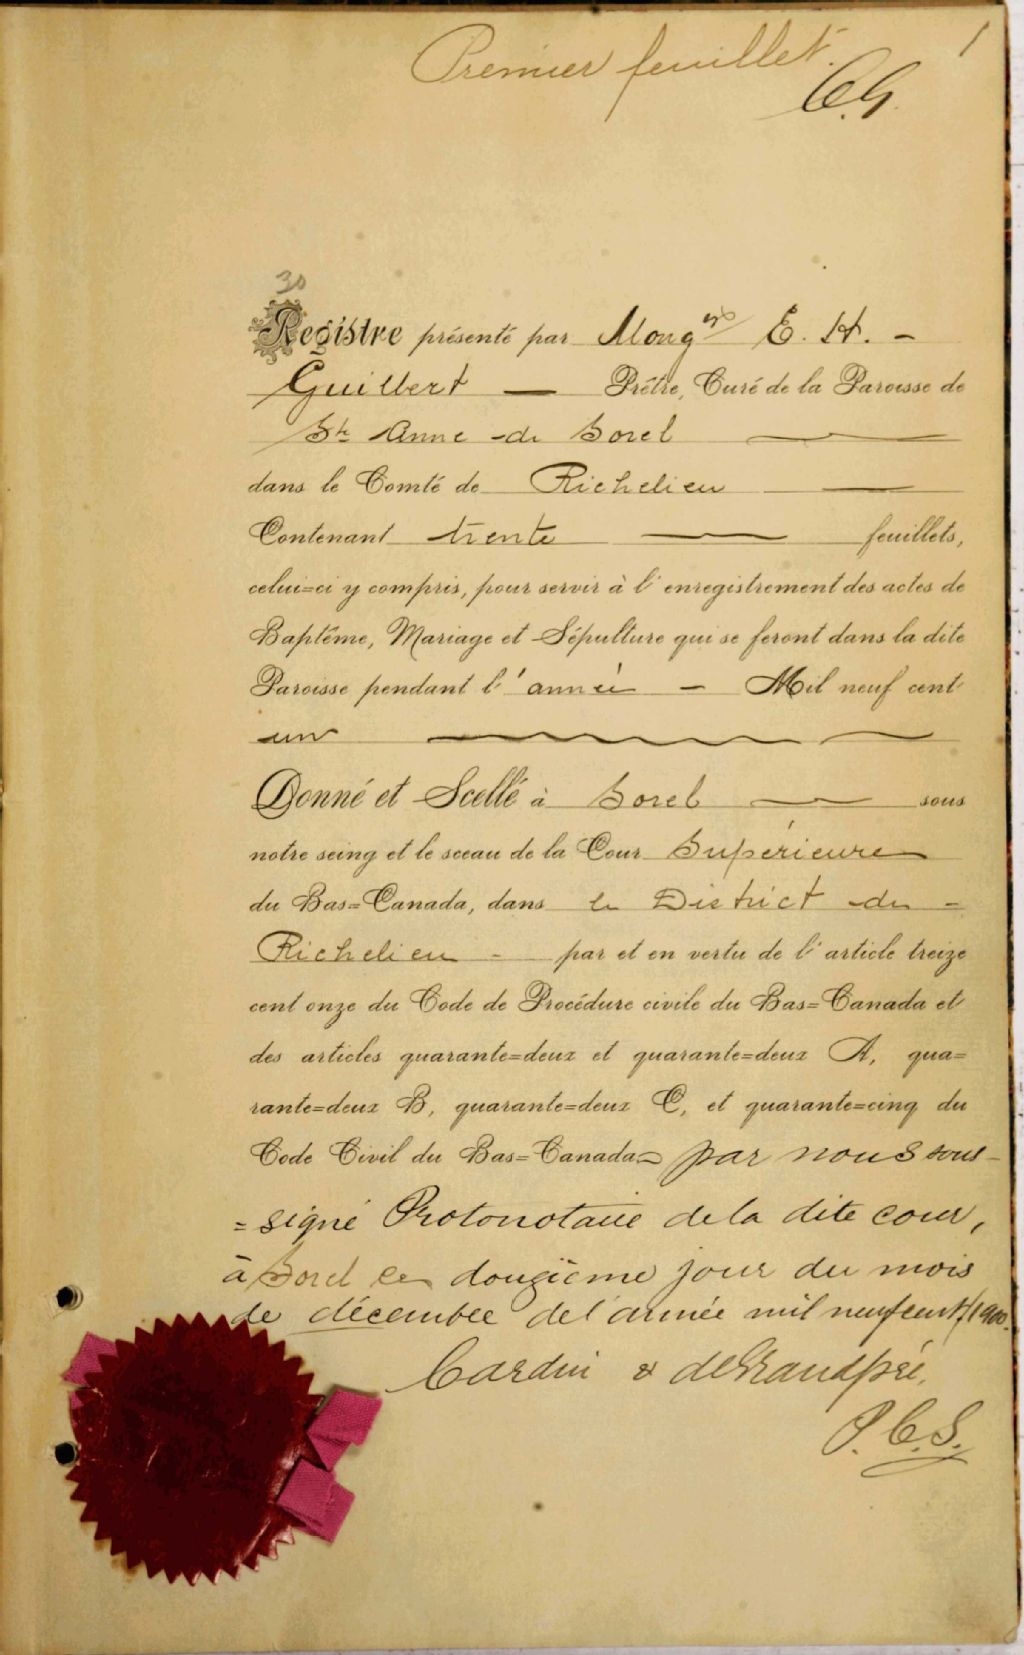 Premier feuillet. 1
C.G.
30
Registre présenté par Mongr E. H. -
Guilbert — Prêtre, Curé de la Paroisse de
Ste Anne de Sorel
dans le Comté de Richelieu
Contenant trente feuillets,
celui=ci y compris, pour servir à l'enregistrement des actes de
Baptême, Mariage et Sépulture qui se feront dans la dite
Paroisse pendant l'année - Mil neuf cent
un
Donné et Scellé à Sorel sous
notre seing et le sceau de la Cour Supérieure
du Bas=Canada, dans le District de -
Richelieu - par et en vertu de l'article treize
cent onze du Code de Procédure civile du Bas=Canada et
des articles quarante=deux et quarante=deux A, qua=
rante=deux B, quarante=deux C, et quarante=cinq du
Code Civil du Bas=Canada= par nous sous-
=signé Protonotaire de la dite cour,
à Sorel ce douzième jour du mois
de décembre de l'année mil neuf cent/1900.
Cardin & deGrandpré,
P.C.S.